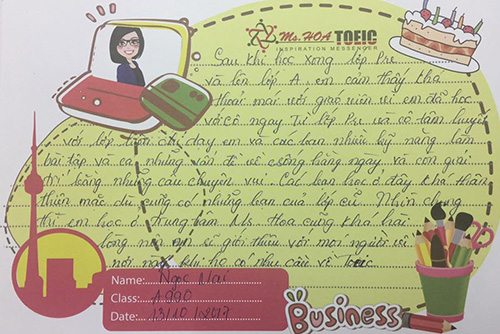 Ms. HOA TOEIC
INSPIRATION MESSENGER
Sau khi học xong lớp Pre
và lên lớp A em cảm thấy khá
thoải mái với giáo viên vì em đã học
với cô ngay từ lớp Pre và cô tâm huyết
với lớp Tận chỉ dạy em và các bạn nhiều kỹ năng làm
bài tập và cả những vấn đề về cuộc sống hàng ngày và còn giải
trí bằng những câu chuyện vui. Các bạn học ở đây khá thân
thiện mặc dù cũng có những bạn quá lớp cũ. Nhìn chung
thì em học ở trung tâm Ms Hoa cũng khá hài
lòng nên em sẽ giới thiệu với mọi người về
nơi này khi họ có nhu cầu về Toeic
Name: Ngọc Mai
Class: A990
Date: 13/10/2017
Business